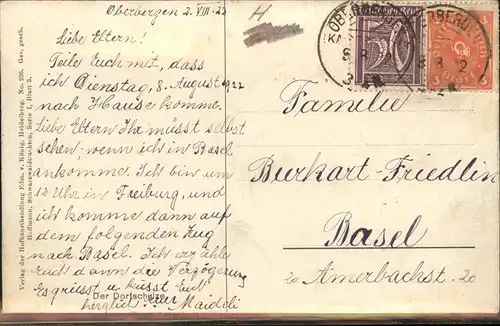 Oberbergen 2. VIII. 22
Liebe Eltern!
Teile Euch mit, dass
ich Dienstag, 8. August 1922
nach Hause komme.
Liebe Eltern Ihr müsst selbst
sehen, wenn ich in Basel
ankomme. Ich bin um
12 Uhr in Freiburg, und
ich komme dann auf
dem folgenden Zug
nach Basel. Ich erzähle
euch dann die Verzögerung
Es grüsst u küsst Euch
herzlich Euer Maideli
Der Dorfschulze
Verlag der Hofkunsthandlung Edm. v. König, Heidelberg. No. 236. Ges. gesch.
Hoffmann, Schwarzwaldtrachten, Serie I, Blatt 3.
H
Familie
Burkart-Friedlin
Basel
20 Amerbachst. 20